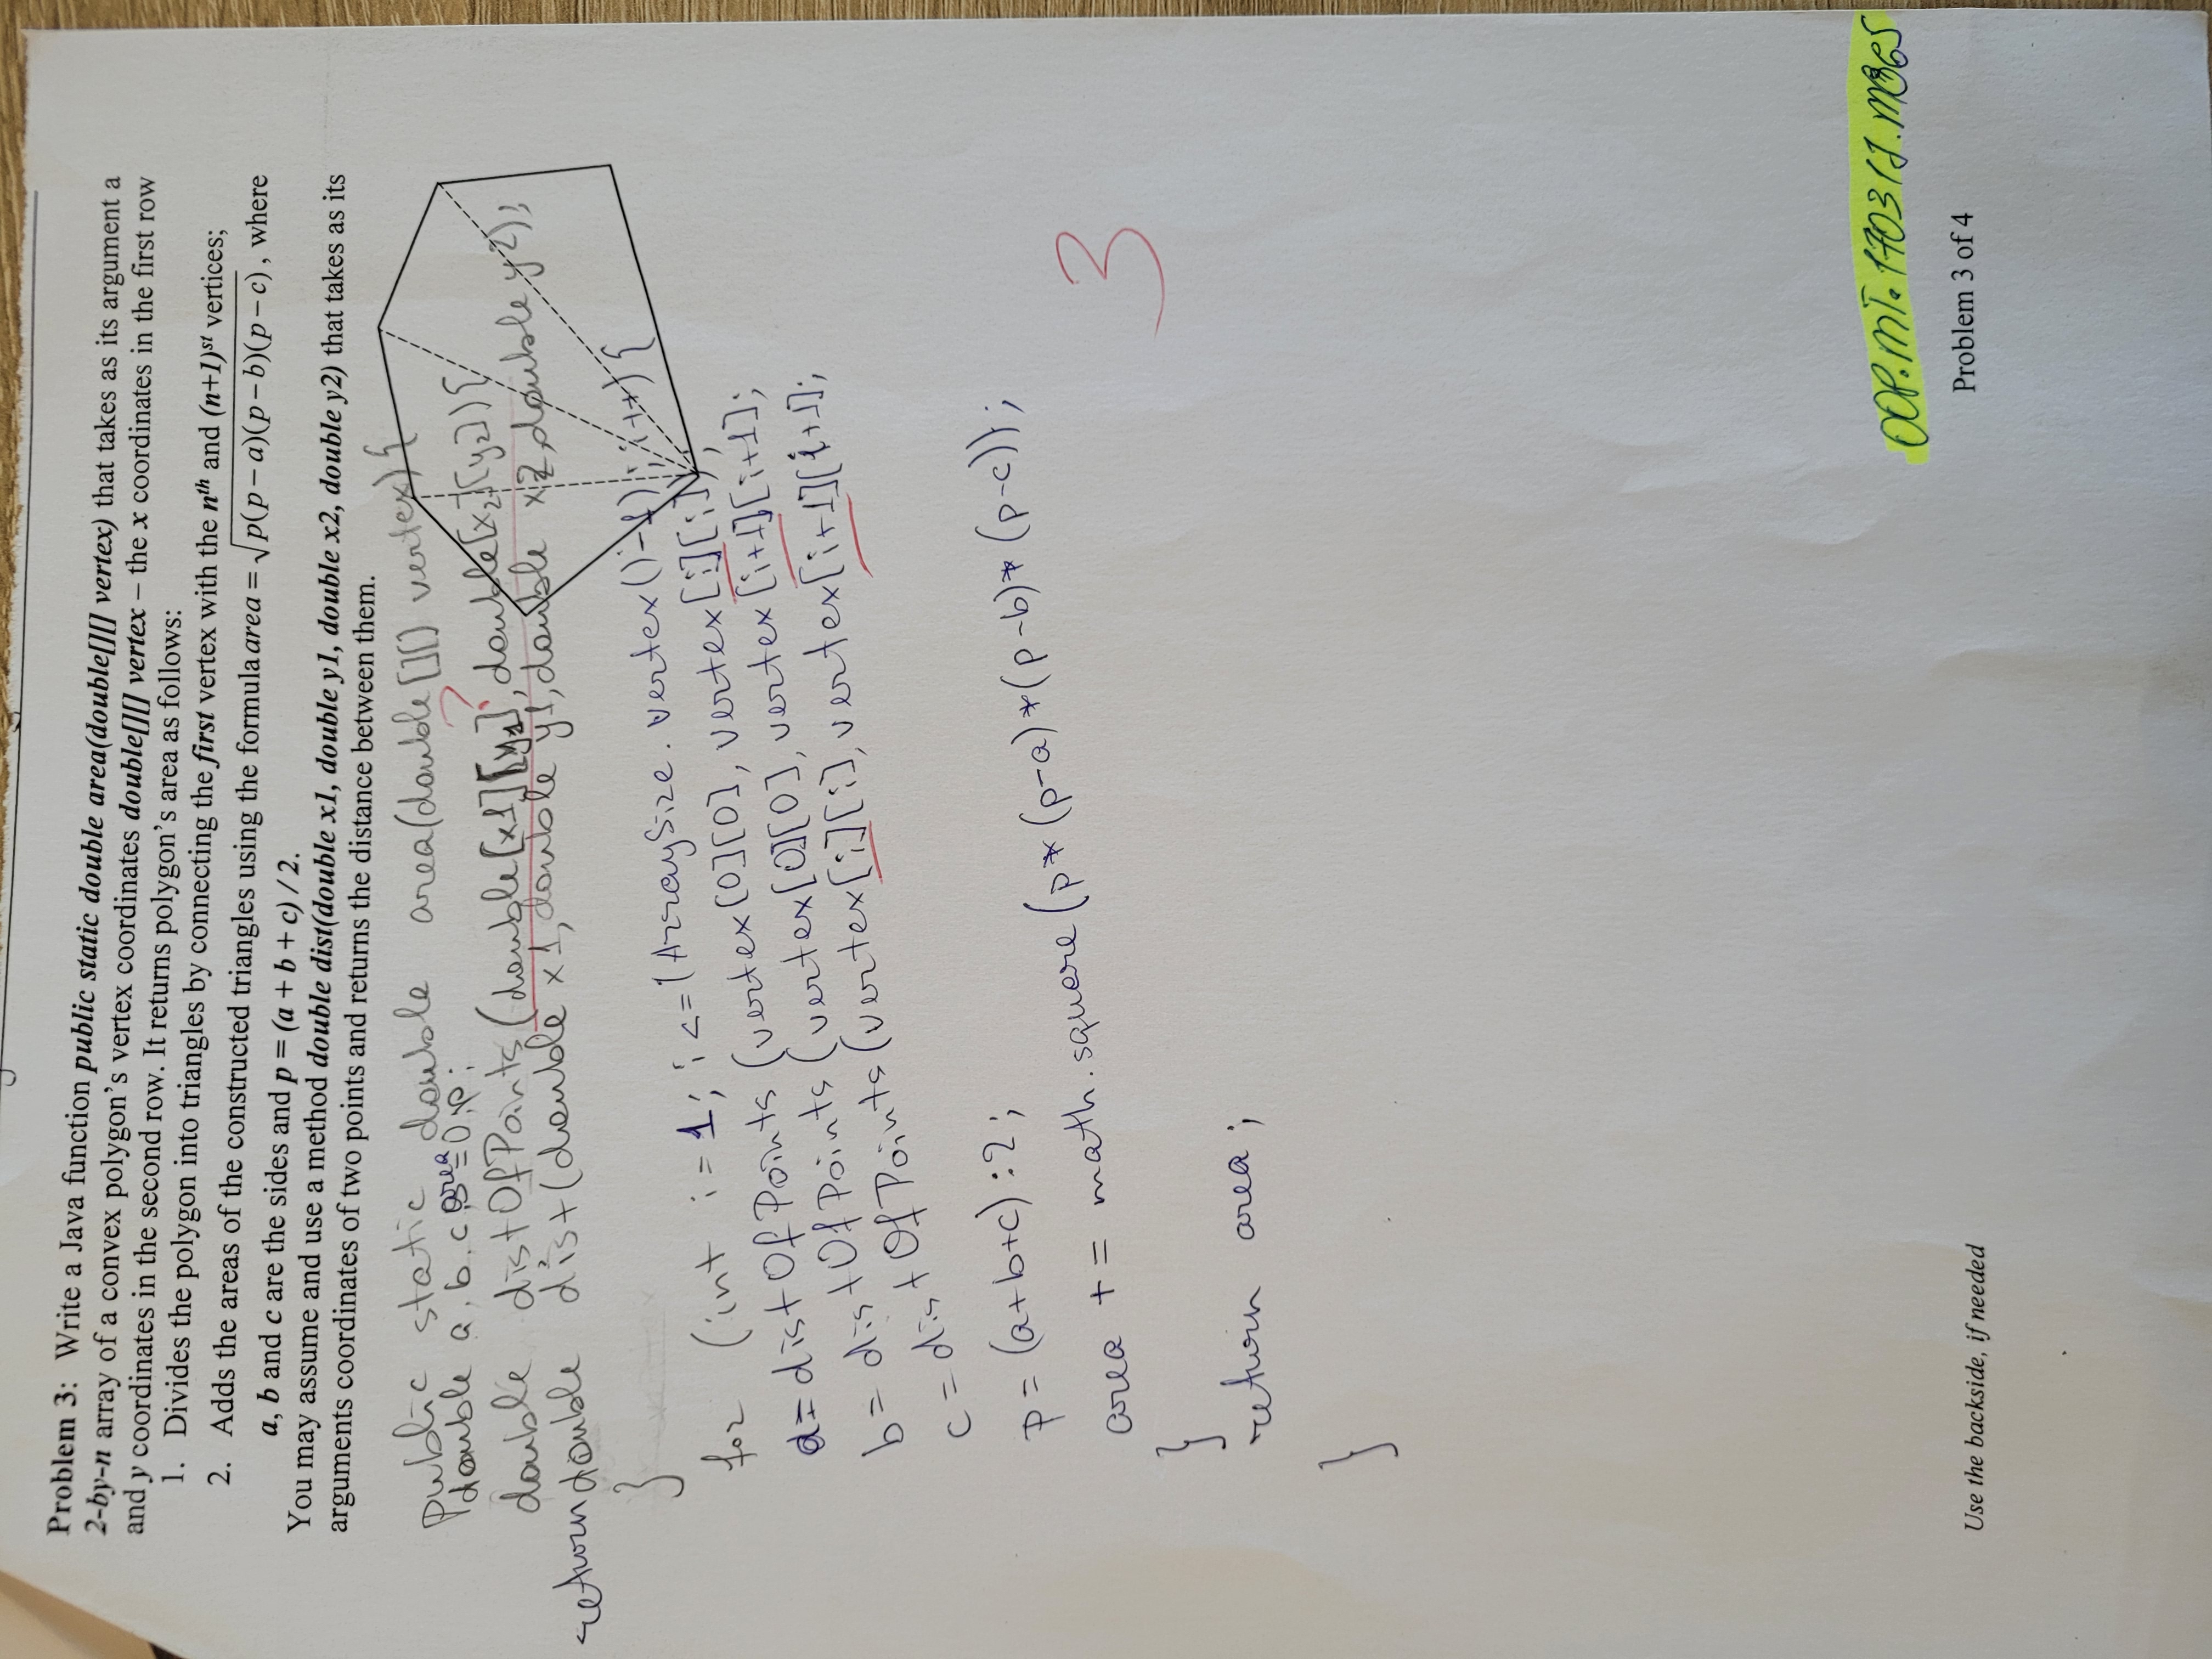 Problem 3: Write a Java function public static double area(double[][] vertex) that takes as its argument a
2-by-n array of a convex polygon's vertex coordinates double[][] vertex – the x coordinates in the first row
and y coordinates in the second row. It returns polygon's area as follows:
1. Divides the polygon into triangles by connecting the first vertex with the nth and (n+1)st vertices;
2. Adds the areas of the constructed triangles using the formula area = √p(p – a)(p – b)(p – c) , where
a, b and c are the sides and p = (a + b + c) / 2.
You may assume and use a method double dist(double x1, double y1, double x2, double y2) that takes as its
arguments coordinates of two points and returns the distance between them.
public static double area(double[][] vertex){
double a, b, c, area = 0, p;
?
double distOfPoints (double[x1][y1], double[x2][y2]){
return double dist (double x1, double y1, double x2, double y2);
}
for (int i = 1; i <= (ArraySize. vertex()-1); i++){
a = distOfPoints (vertex[0][0], vertex[i][i]);
b = distOfPoints (vertex[0][0], vertex[i+1][i+1];
c = distOfPoints (vertex[i][i], vertex[i+1][i+1];
p = (a+b+c) :2;
area += math.square (p*(p-a)*(p-b)*(p-c));
3
}
return area ;
}
Use the backside, if needed
Problem 3 of 4